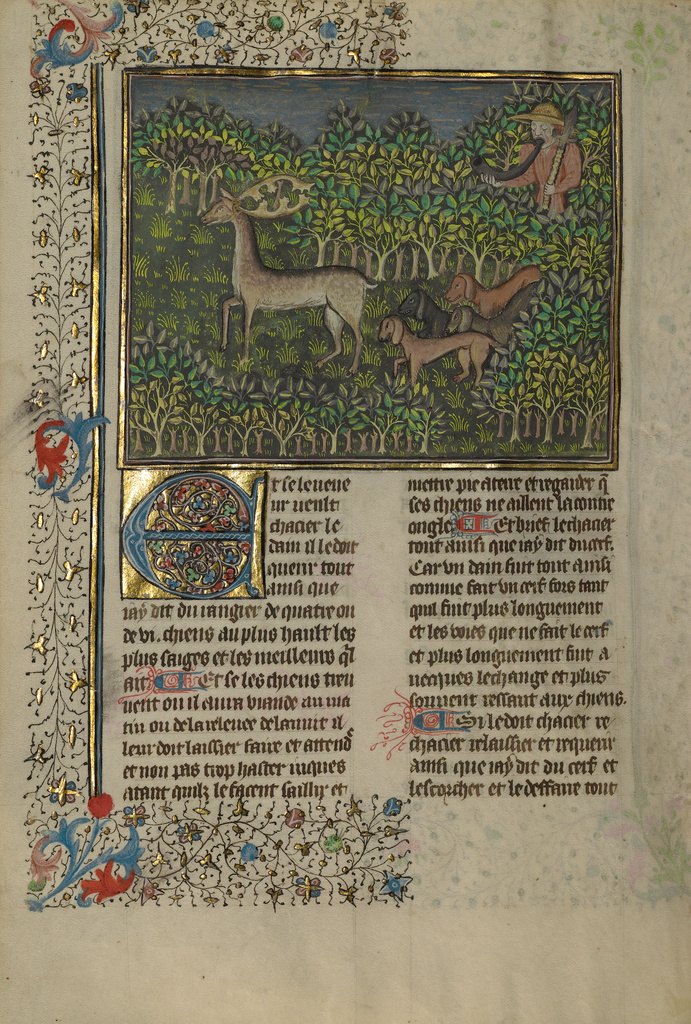 Et se le vene
ur veult
chacier le
dain il le doit
querir tout
ainsi que
jay dit du rangier de quatre ou
de vi. chiens au plus hault les
plus saiges et les meilleurs ql
ait Et se les chiens treu
uent ou il aura viande au ma
tin ou de la releuee de la nuit il
leur doit laissier faire et attend
et non pas trop haster iusques
atant quilz le facent saillir et
mettre pie a terre et regarder q
ses chiens ne aillent la contre
ongle Et brief le chacier
tout ainsi que jay dit du cerf.
Car vn dain fuit tout ainsi
comme fait vn cerf fors tant
quil fuit plus longuement
et les voies que ne fait le cerf
et plus longuement fuit a
uecques le change et plus
souuent ressaut aux chiens.
Si le doit chacier re
chacier relaissier et requerir
ainsi que jay dit du cerf et
lescorcher et le deffaire tout